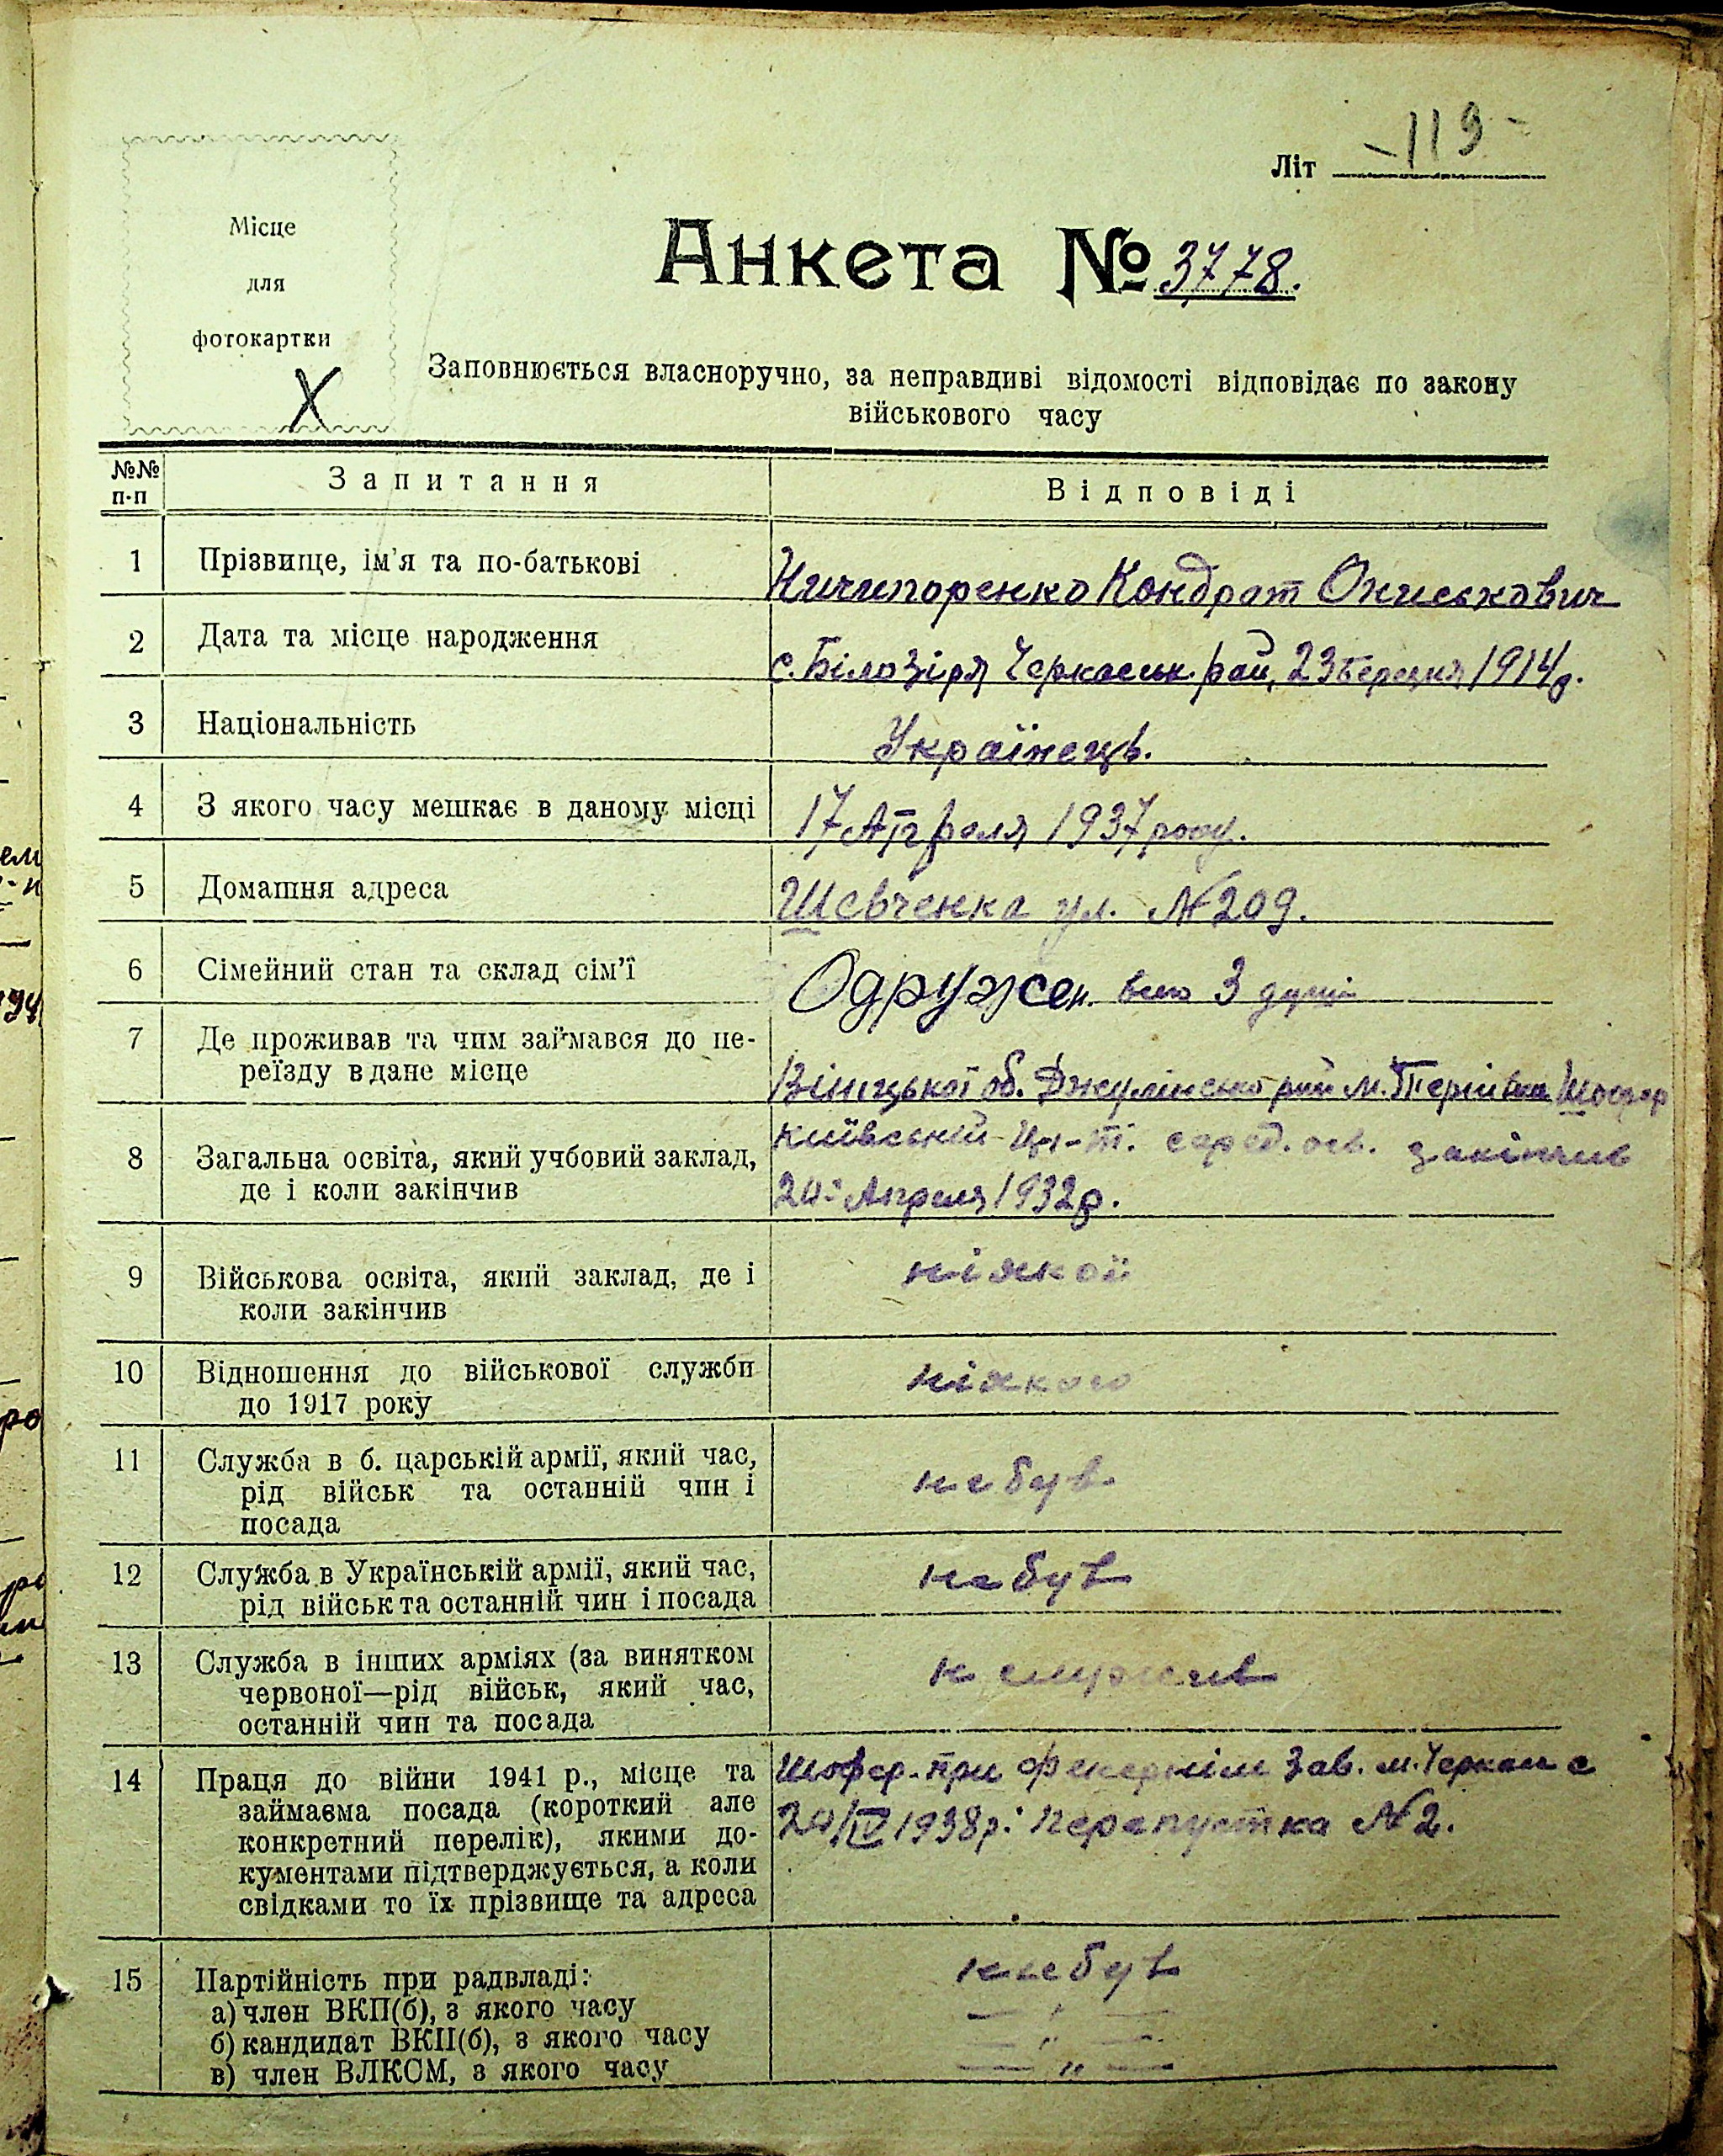 Літ -119-
Місце
для
фотокартки
Х
Анкета № 3778.
Заповнюється власноручно, за неправдиві відомості відповідає по закону
військового часу
№№ п-п Запитання Відповіді
1 Прізвище, ім'я та по-батькові Ничипоренко Кондрат Ониськович
2 Дата та місце народження с. Білозіря Черкаськ. рай, 23 березня 1914 р.
3 Національність Українець.
4 З якого часу мешкає в даному місці 17 Апреля 1937 року.
5 Домашня адреса Шевченка ул. № 209.
6 Сімейний стан та склад сім'ї Одружен. всего 3 душі
7 Де проживав та чим займався до пе-
реїзду в дане місце Вініцької об. Джулінсько рай м. Тернівка Шофер
8 Загальна освіта, який учбовий заклад, Київській серед. осв. закінчив
де і коли закінчив 20 Апреля 1932 р.
9 Військова освіта, який заклад, де і ніякої
коли закінчив
10 Відношення до військової служби ніякого
до 1917 року
11 Служба в б. царській армії, який час, не був
рід військ та останній чин і
посада
12 Служба в Українській армії, який час, не був
рід військ та останній чин і посада
13 Служба в інших арміях (за винятком н служив
червоної—рід військ, який час,
останній чин та посада
14 Праця до війни 1941 р., місце та Шофер при зав. м. Черкаси с
займаєма посада (короткий але 20/IV 1938 р. Перепустка № 2.
конкретний перелік), якими до-
кументами підтверджується, а коли
свідками то їх прізвище та адреса
15 Партійність при радвладі: не був
а) член ВКП(б), з якого часу — " —
б) кандидат ВКП(б), з якого часу — " —
в) член ВЛКСМ, з якого часу — " —